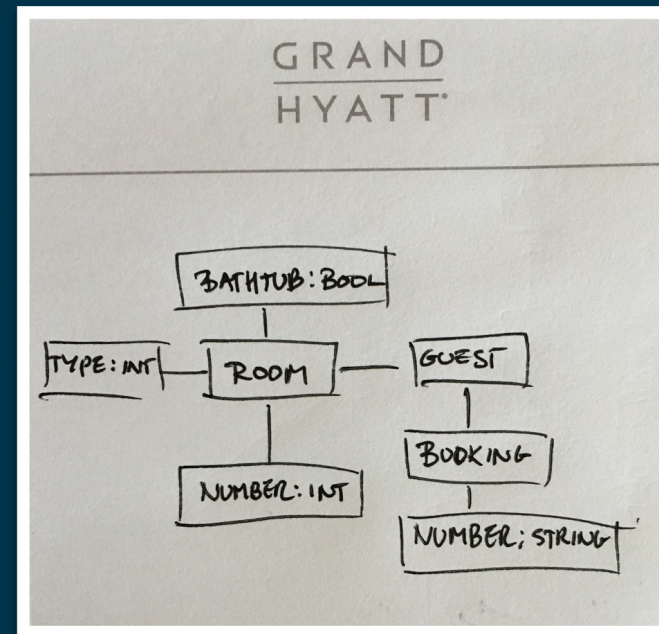 GRAND
HYATT
BATHTUB: BOOL
TYPE: INT
ROOM
GUEST
BOOKING
NUMBER: INT
NUMBER: STRING